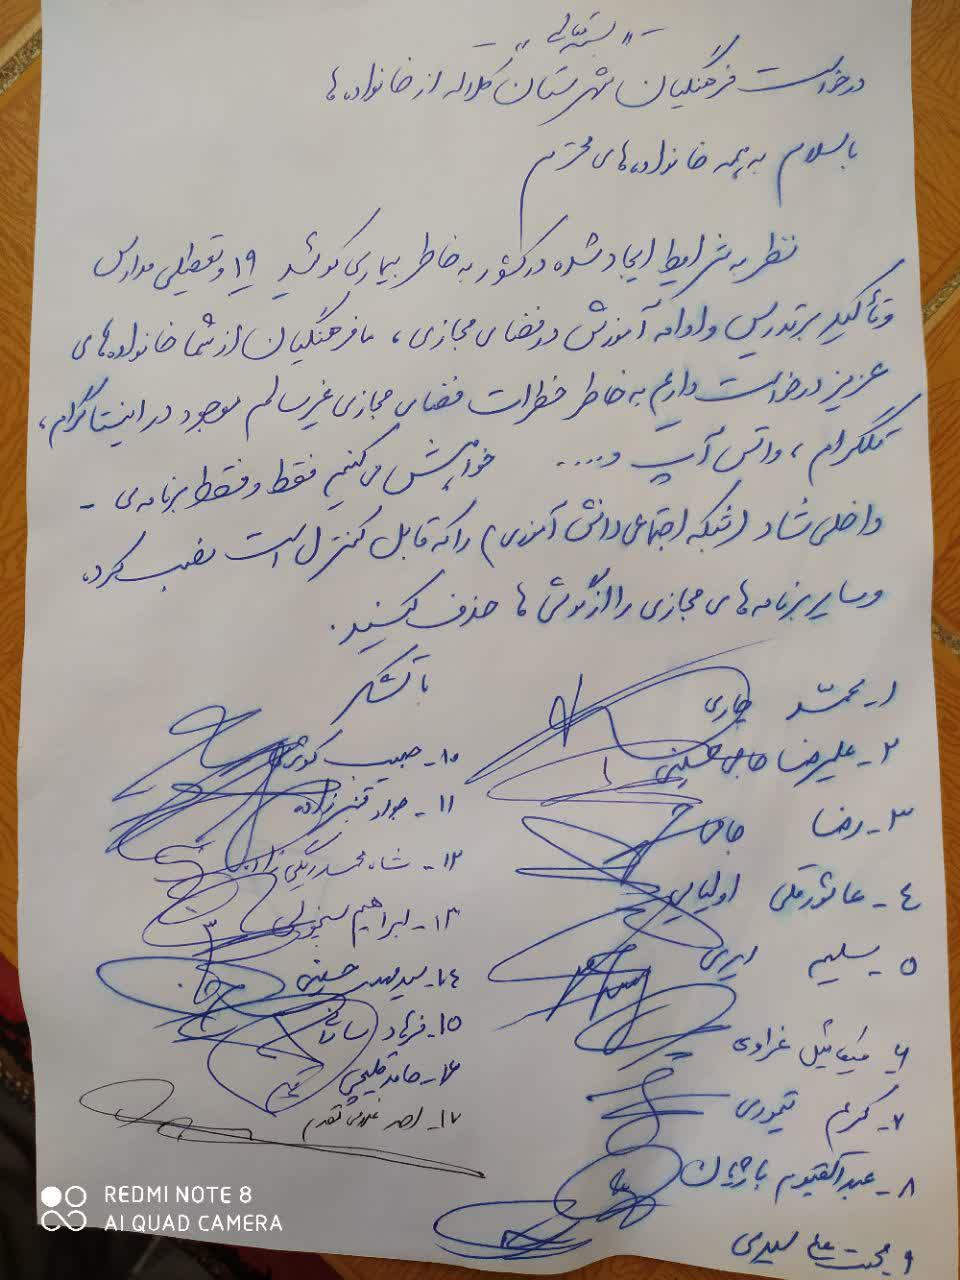 "بسمه تعالی"
درخواست فرهنگیان شهرستان کلاله از خانواده ها
با سلام به همه خانواده های محترم
نظر به شرایط ایجاد شده در کشور به خاطر بیماری کوئید ۱۹ و تعطیلی مدارس
و تأکید بر تدریس و ادامه آموزش در فضای مجازی، ما فرهنگیان از شما خانواده های
عزیز درخواست داریم به خاطر خطرات فضای مجازی غیر سالم موجود در اینستاگرام،
تلگرام، واتس آپ و..... خواهش می کنیم فقط و فقط برنامه ی -
داخلی شاد (شبکه اجتماعی دانش آموزی) را که قابل کنترل است نصب کرده
و سایر برنامه های مجازی را از گوشی ها حذف کنید.
با تشکر
۱- محمد
۲- علیرضا حاجی حسینی
۳- رضا
۴- عاشورقلی اولیایی
۵- سلیم ایری
۶- میکائیل غراوی
۷- کریم تیموری
۸- عبدالقیوم
۹- محبت علی سیدی
۱۰- حبیب
۱۱- جواد قنبرزاده
۱۲- شاه محمد ریگی
۱۳- ابراهیم سنچولی
۱۴- سید مهدی حسینی
۱۵- فرهاد
۱۶- حامد قلیچی
۱۷- احمد
REDMI NOTE 8
AI QUAD CAMERA